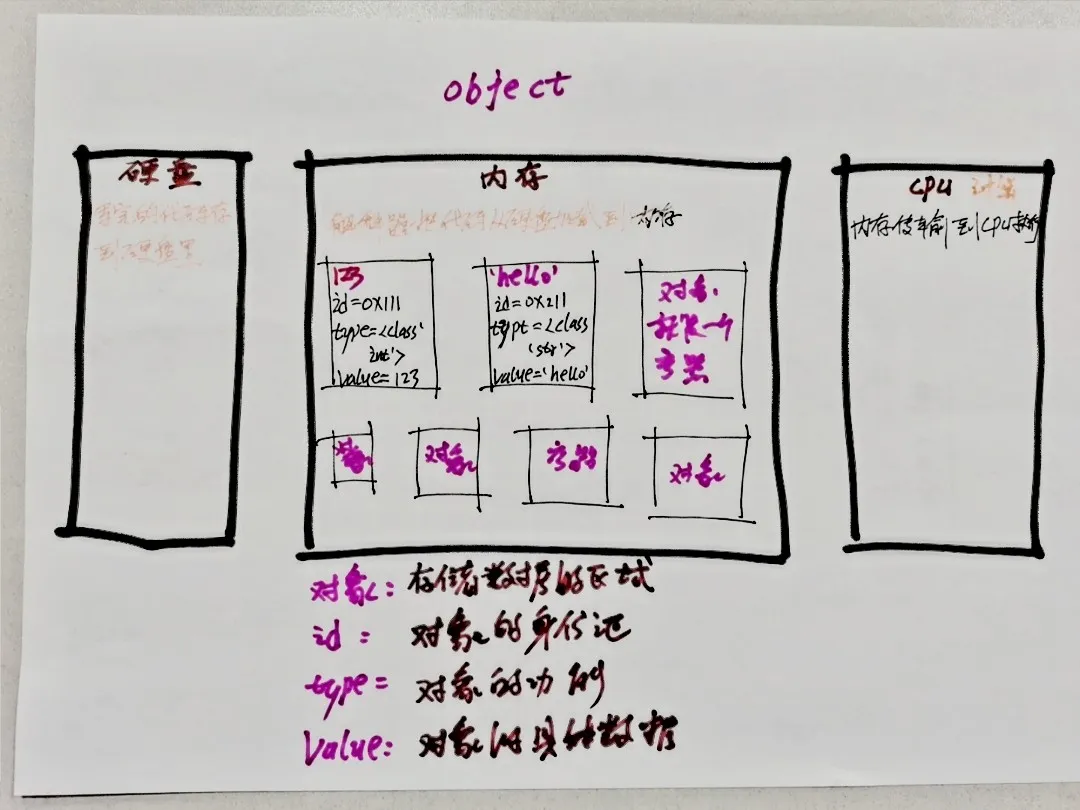 object
硬盘
写完的代码存
到硬盘里
内存
解释器把代码从硬盘加载到内存
123
id=0x111
type=<class'
int'>
value=123
'hello'
id=0x211
type=<class
'str'>
value='hello'
对象.
就是一个
容器
对象
对象
容器
对象
CPU 计算
内存传输到CPU执行
对象: 存储数据的区域
id: 对象的身份证
type= 对象的功能
Value: 对象的具体数据